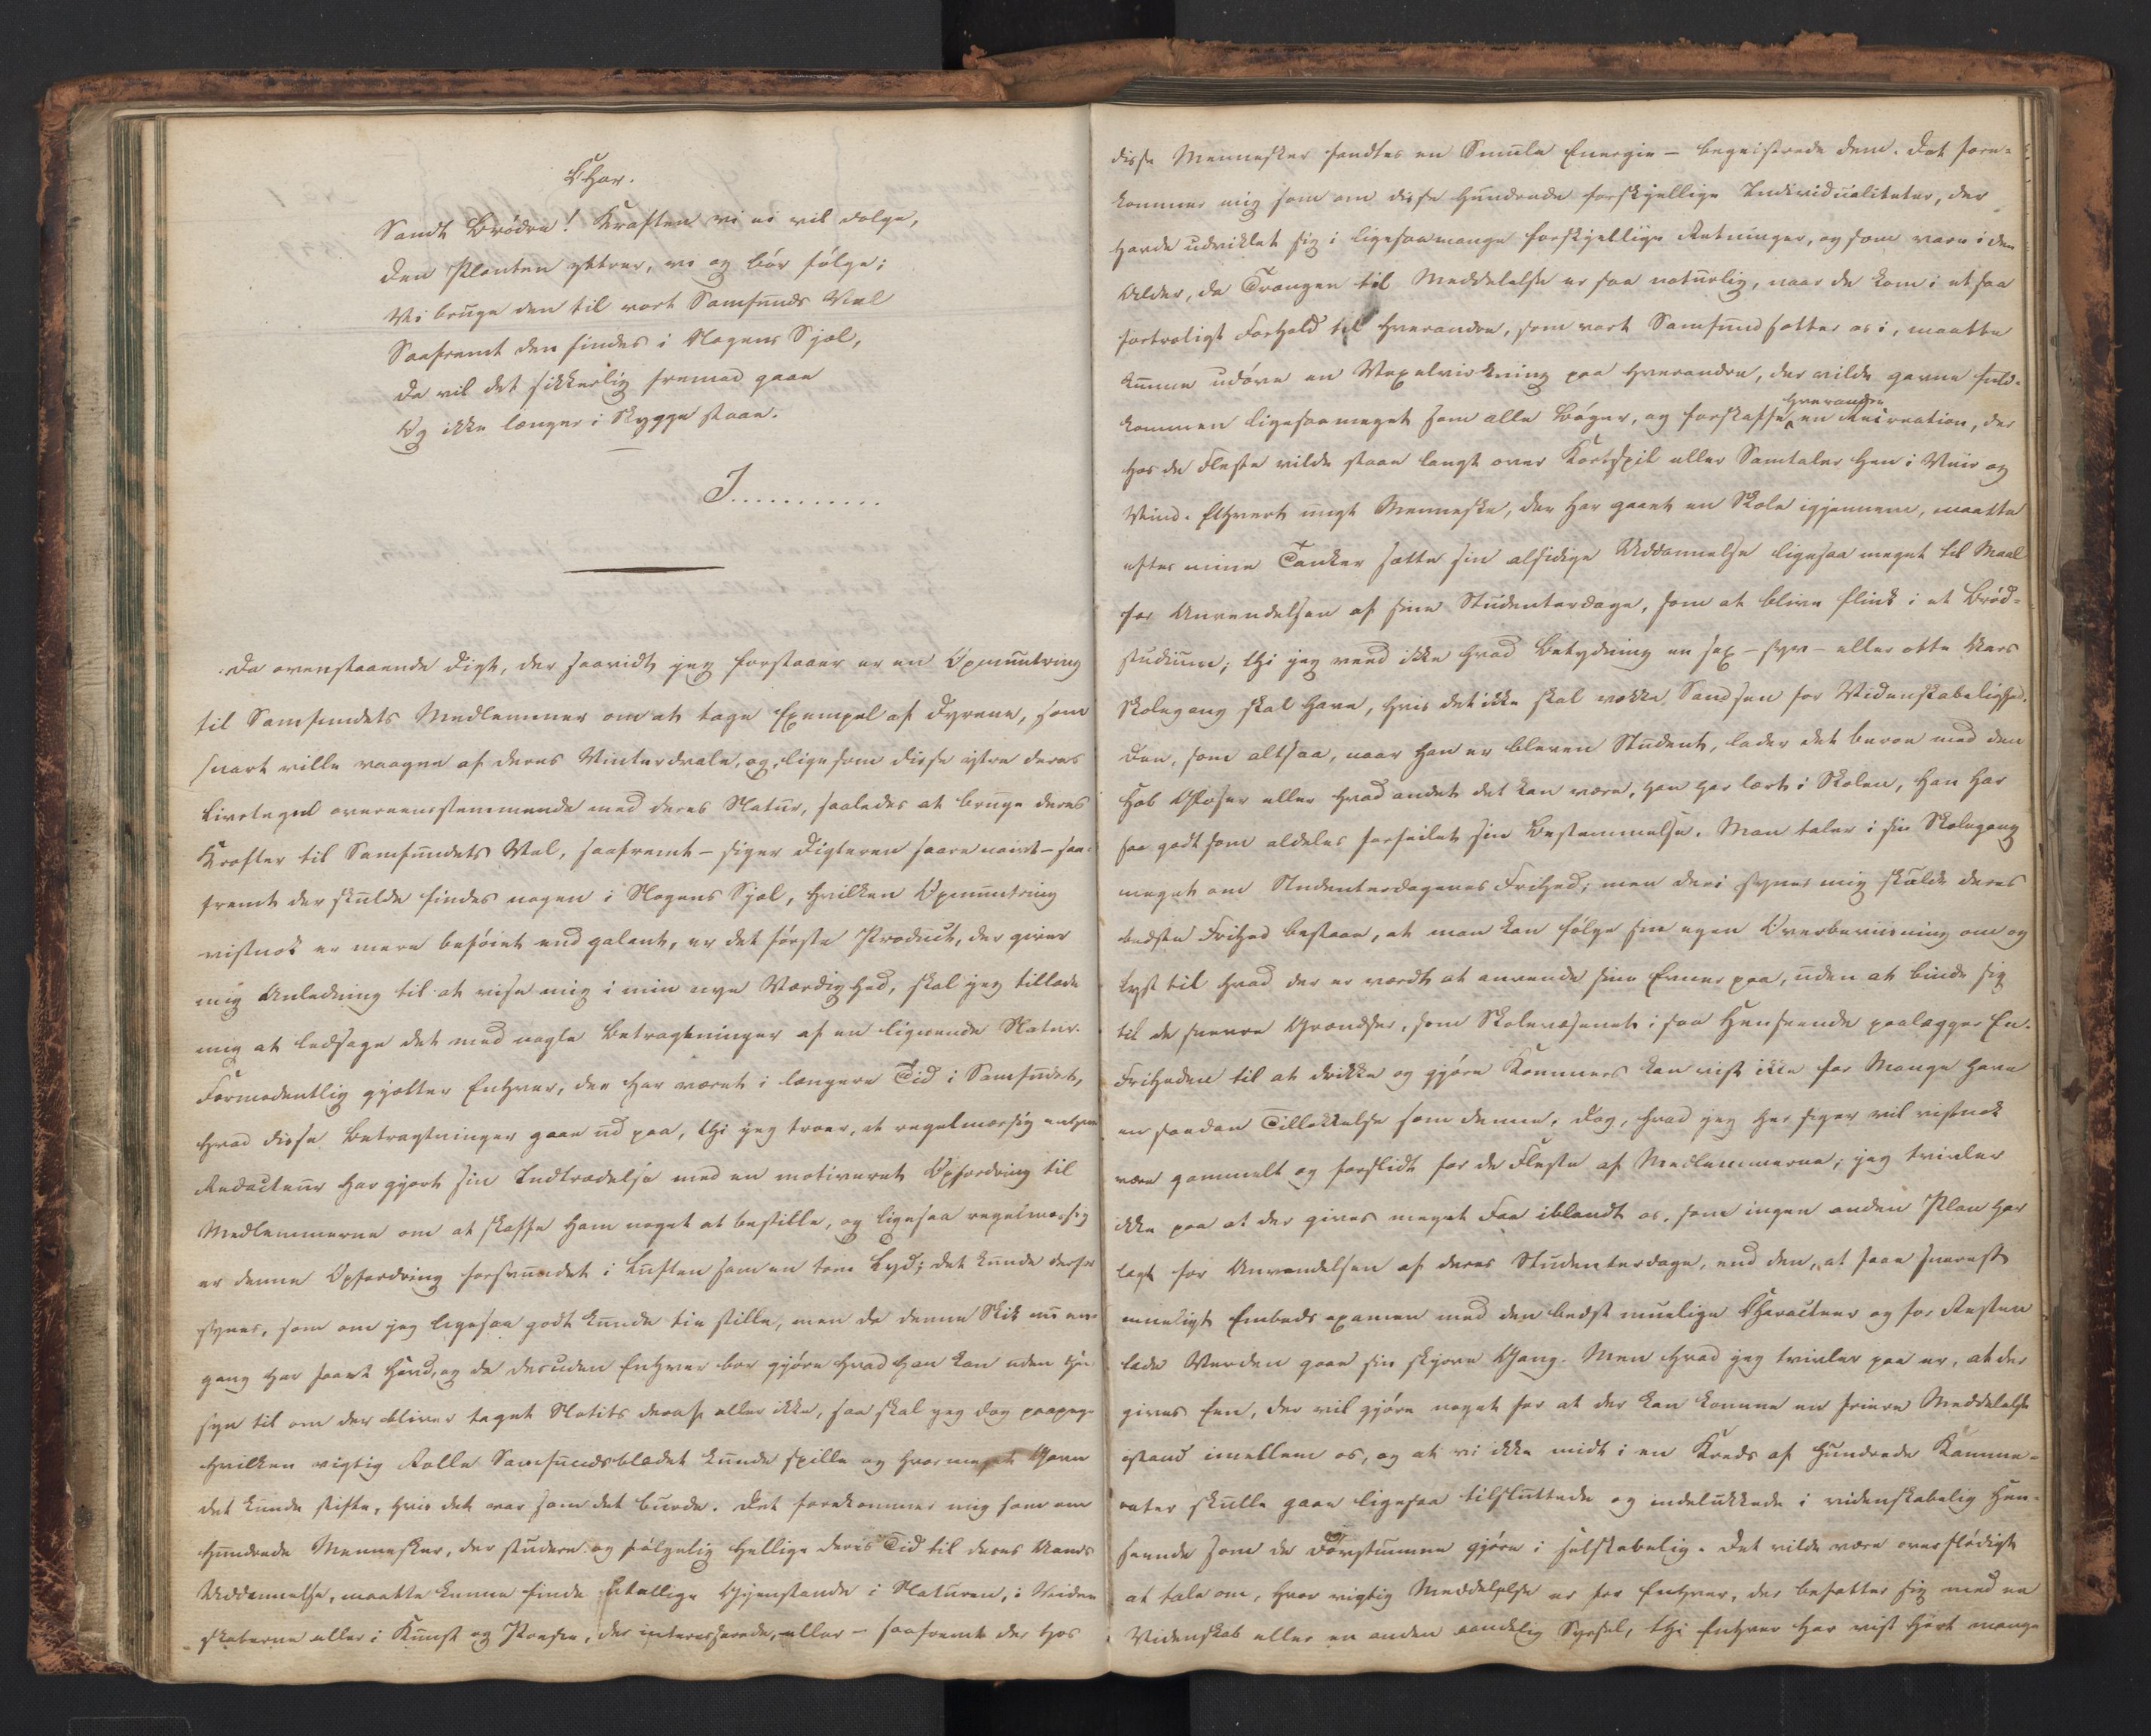 Chor.
Sandt Brødre! Kraften vi ei vil dølge,
den Planten yttrer, vi og bør følge;
Vi bruge den til vort Samfunds Vel
Saafremt den findes i Nogens Sjæl,
da vil det sikkerlig fremad gaae
Og ikke længer i Skygge staae.
J............
Da ovenstaaende Digt, der saavidt jeg forstaaer er en Opmuntring
til Samfundets Medlemmer om at tage Exempel af Dyrene, som
snart ville vaagne af deres Vinterdvale, og, ligesom disse yttre deres
Livstegn overeensstemmende med deres Natur, saaledes at bruge deres
Kræfter til Samfundets Vel, saafremt - siger Digteren saare naivt - saa-
fremt der skulde findes nogen i Nogens Sjæl, hvilken Opmuntring
vistnok er mere beføiet end galant, er det første Product, der giver
mig Anledning til at vise mig i min nye Værdighed, skal jeg tillade
mig at ledsage det med nogle Betragtninger af en lignende Natur.
Formodentlig gjætter Enhver, der har været i længere Tid i Samfundet,
hvad disse Betragtninger gaae ud paa, thi jeg troer, at regelmæssig enhver
Redacteur har gjort sin Indtrædelse med en motiveret Opfordring til
Medlemmerne om at skaffe ham noget at bestille, og ligesaa regelmæssig
er denne Opfordring forsvundet i Luften som en tom Lyd; det kunde derfor
synes, som om jeg ligesaa godt kunde tie stille, men da denne Skik nu een-
gang har faaet Hævd, og da desuden Enhver bør gjøre hvad han kan uden Hen-
syn til om der bliver taget Notits deraf eller ikke, saa skal jeg dog paapege
hvilken vigtig Rolle Samfundsbladet kunde spille og hvor meget Gavn
det kunde stifte, hvis det var som det burde. Det forekommer mig som om
hundrede Mennesker, der studere og følgelig hellige deres Tid til deres Aands
Uddannelse, maatte kunne finde utallige Gjenstande i Naturen, i Viden-
skaberne eller i Kunst og Poesie, der interesserede, eller - saafremt der hos
disse Mennesker fandtes en Smule Energie - begeistrede dem. Det fore-
kommer mig som om disse hundrede forskjellige Individualiteter, der
havde udviklet sig i ligesaamange forskjellige Retninger, og som vare i den
Alder, da Trangen til Meddelelse er saa naturlig, naar de kom i et saa
fortroligt Forhold til hverandre, som vort Samfund sætter os i, maatte
kunne udøve en Vexelvirkning paa hverandre, der vilde gavne fuld-
kommen ligesaameget som alle Bøger, og forskaffe hverandre en Recreation, der
hos de Fleste vilde staae langt over Kortspil eller Samtaler hen i Veir og
Vind. Ethvert ungt Menneske, der har gaaet en Skole igjennem, maatte
efter mine Tanker sætte sin alsidige Uddannelse ligesaa meget til Maal
for Anvendelsen af sine Studenterdage, som at blive flink i et Brød-
studium; thi jeg veed ikke hvad Betydning en sex - syv - eller otte Aars
Skolegang skal have, hvis det ikke skal vække Sandsen for Videnskabelighed.
Den, som altsaa, naar han er bleven Student, lader det beroe med den
Hob Gloser eller hvad andet det kan være, han har lært i Skolen, han har
saa godt som aldeles forfeilet sin Bestemmelse. Man taler i sin Skolegang
meget om Studenterdagenes Frihed; men deri synes mig skulde deres
bedste Frihed bestaae, at man kan følge sin egen Overbeviisning om og
Lyst til hvad der er værdt at anvende sine Evner paa, uden at binde sig
til de snevre Grændser, som Skolevæsenet i saa Henseende paalægger En.
Friheden til at drikke og gjøre Kommers kan vist ikke for Mange have
en saadan Tillokkelse som denne. Dog, hvad jeg her siger vil vistnok
være gammelt og forslidt for de Fleste af Medlemmerne; jeg tvivler
ikke paa at der gives meget Faa iblandt os, som ingen anden Plan har
lagt for Anvendelsen af deres Studenterdage, end den, at faae snarest
mueligt Embedsexamen med den bedst muelige Characteer og for Resten
lade Verden gaae sin skjæve Gang. Men hvad jeg tvivler paa er, at der
gives Een, der vil gjøre noget for at der kan komme en friere Meddelelse
istand imellem os, og at vi ikke midt i en Kreds af hundrede Kamme-
rater skulle gaae ligesaa tilsluttede og indelukkede i videnskabelig Hen-
seende som de Døvstumme gjøre i selskabelig. Det vilde være overflødigt
at tale om, hvor vigtig Meddelelse er for Enhver, der befatter sig med en
Videnskab eller en anden aandelig Syssel, thi Enhver har vist hørt mange